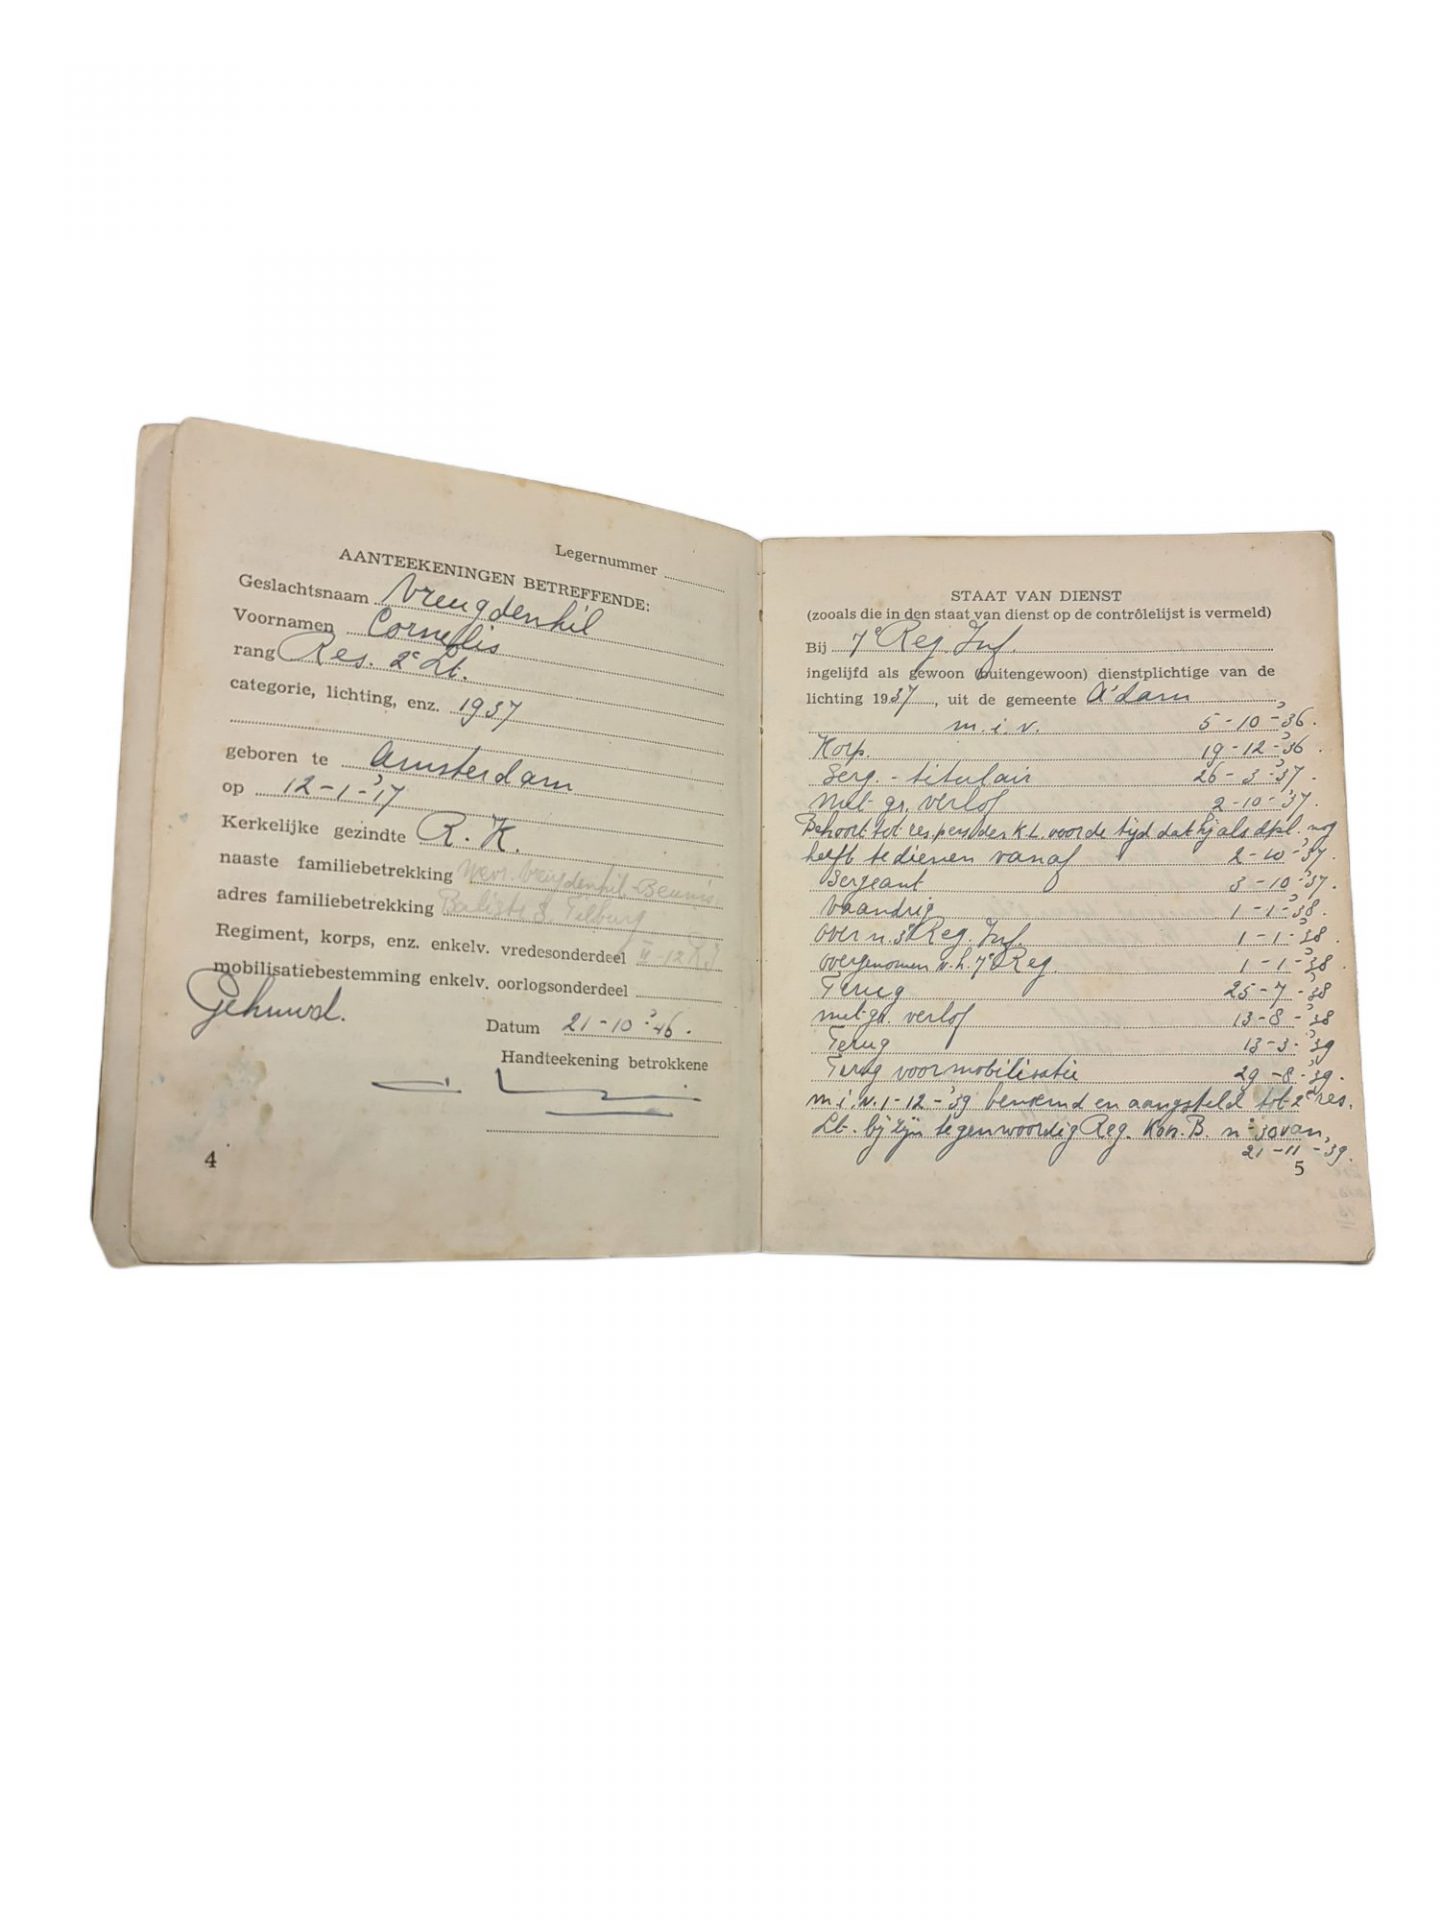 Legernummer
AANTEEKENINGEN BETREFFENDE:
Geslachtsnaam Vreugdenhil
Voornamen Cornelis
rang Res. 2e Lt.
categorie, lichting, enz. 1937
geboren te Amsterdam
op 12-1-'17
Kerkelijke gezindte R.K.
naaste familiebetrekking Mevr. Vreugdenhil-Beunis
adres familiebetrekking Tilburg
Regiment, korps, enz. enkelv. vredesonderdeel II-12 RI
mobilisatiebestemming enkelv. oorlogsonderdeel
Gehuwd.
Datum 21-10-'46.
Handteekening betrokkene
4
STAAT VAN DIENST
(zooals die in den staat van dienst op de contrôlelijst is vermeld)
Bij 7e Reg. Inf.
ingelijfd als gewoon (buitengewoon) dienstplichtige van de
lichting 1937, uit de gemeente A'dam
m.i.v. 5-10-'36.
Korp. 19-12-'36.
Serg.-titulair 26-3-'37.
met gr. verlof 2-10-'37.
Behoort tot res. pers. der K.L. voor de tijd dat hij als dpl. nog
heeft te dienen vanaf 2-10-'37.
Sergeant 3-10-'37.
Vaandrig 1-1-'38.
over n. 3e Reg. Inf. 1-1-'38.
overgenomen v.h. 7e Reg. 1-1-'38
Terug 25-7-'38
met gr. verlof 13-8-'38
Terug 13-3-'39
Terug voor mobilisatie 29-8-'39.
m.i.v. 1-12-'39 benoemd en aangesteld tot 2e res.
Lt. bij zijn tegenwoordig Reg. Kon. B. no 30 van
21-11-'39.
5